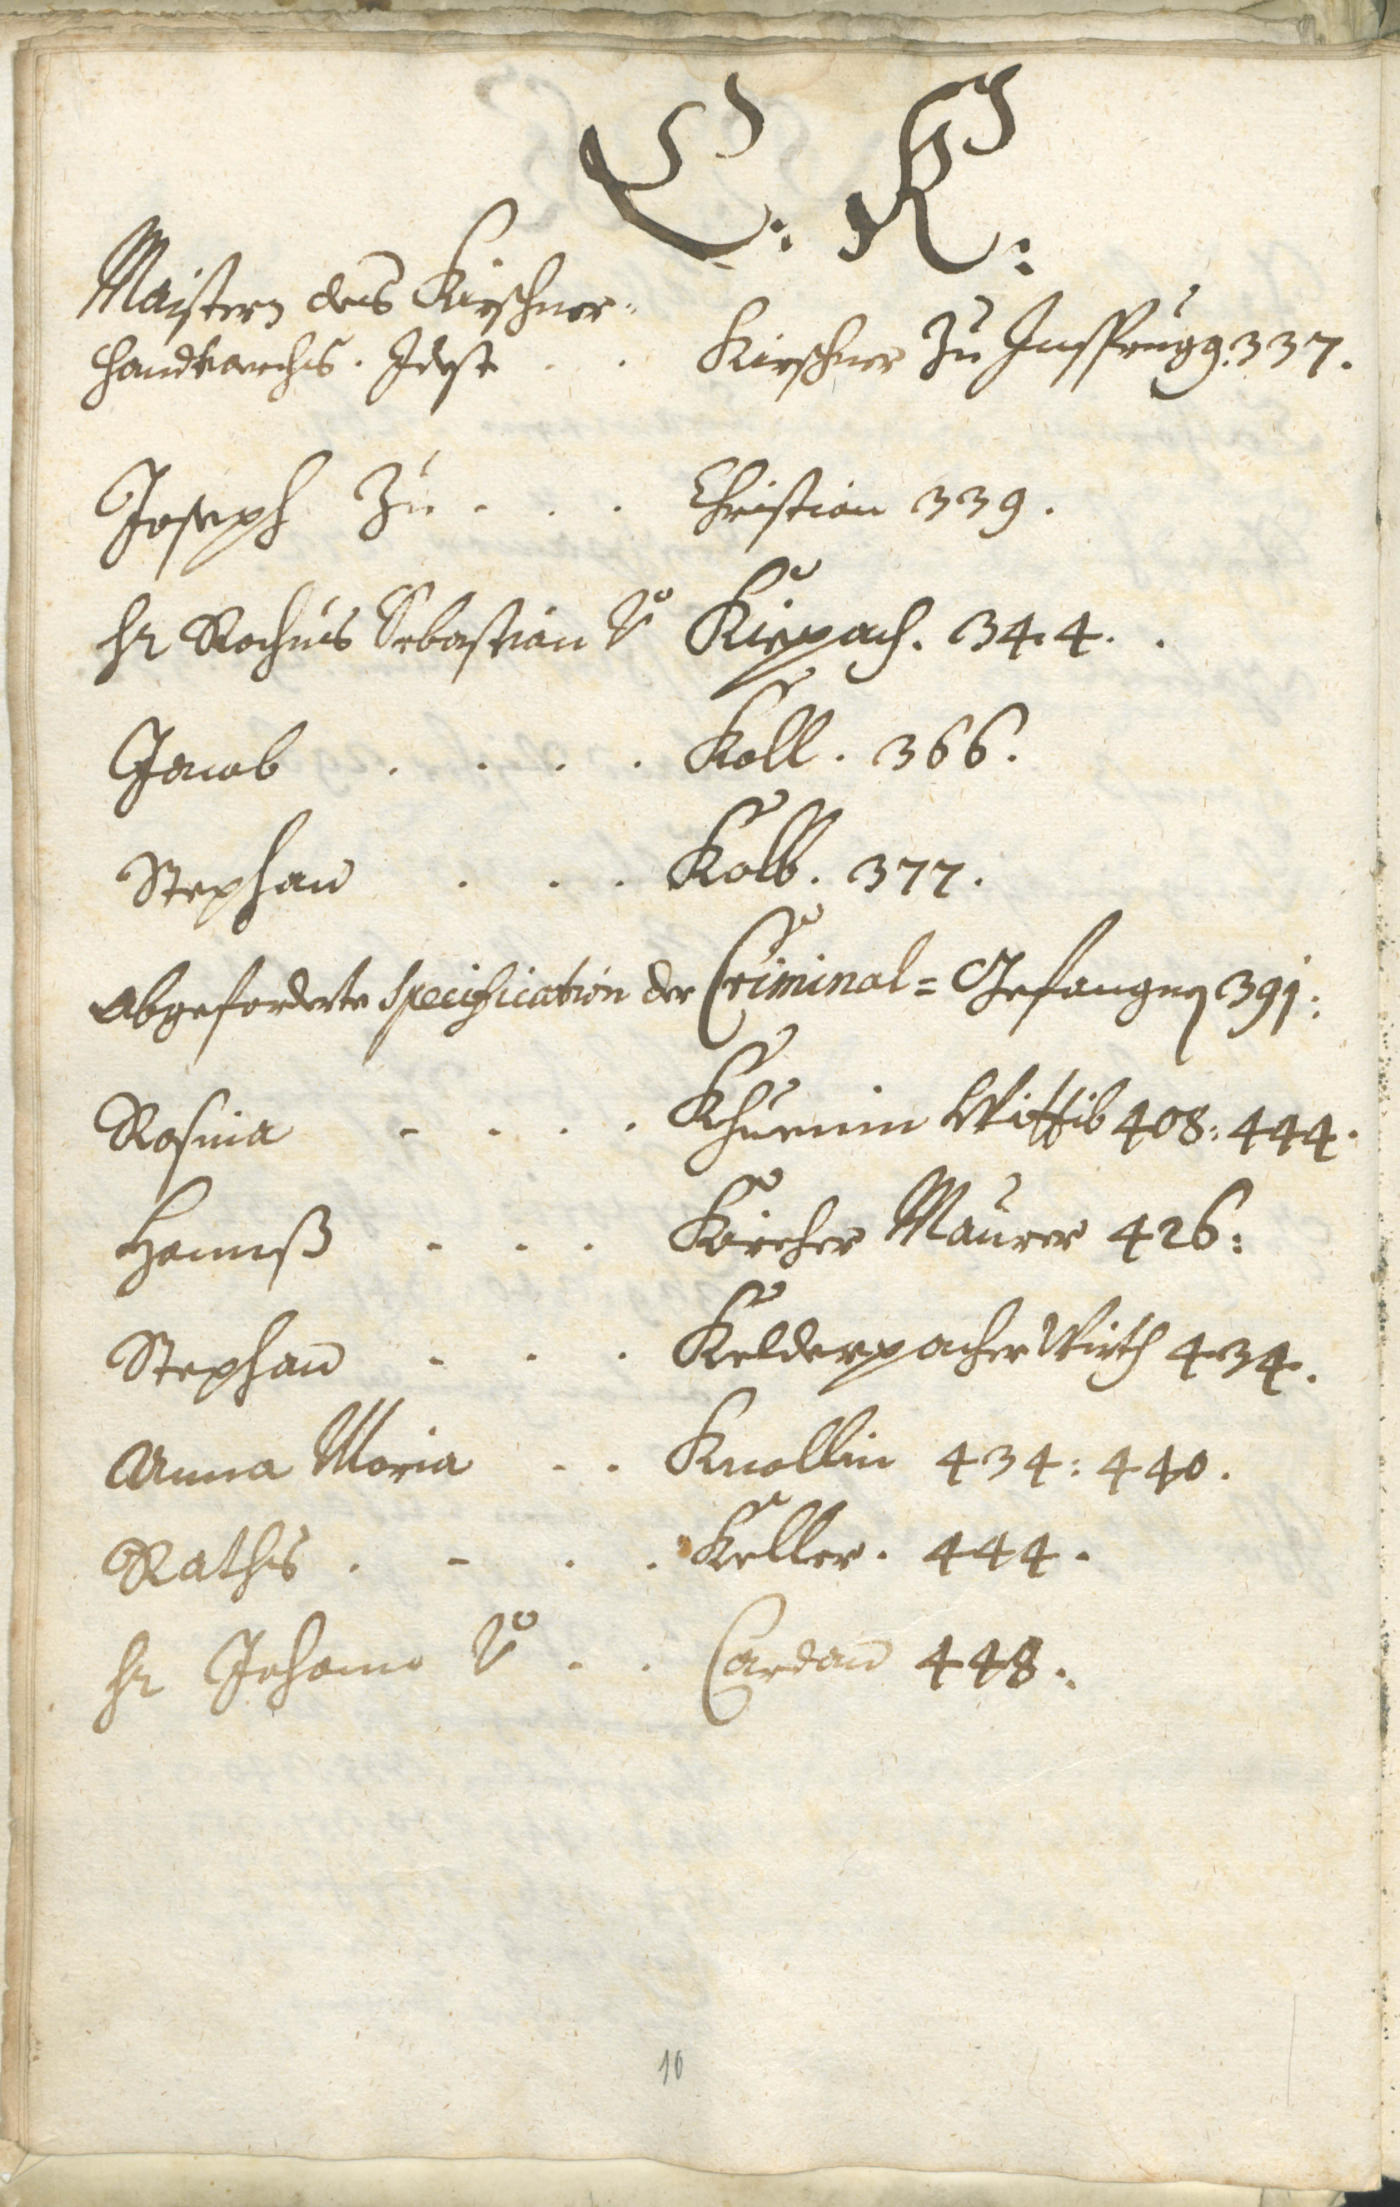 C: K:
Maistern des Kirschner-
handtwerchs. Idest . . Kirschner zu Insprugg. 337.
Joseph Zu . . . Christian 339.
Hr Rochus Sebastian V° Kirpach. 344.
Jacob . . . . Koll. 366.
Stephan . . . Kolb. 377.
Abgeforderte Specification der Criminal= Gefangnen 391:
Rosina - . . . Khuenin Wittib 408: 444.
Hannß - . . Kircher Maurer 426:
Stephan - . . Kelderpacher Wirth 434.
Anna Maria . . Knollin 434: 440.
Mathis . - . . Keller. 444.
Hr Johann V° . . Cardan 448.
10